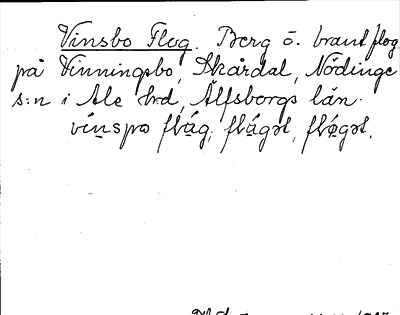 Vinsbo Flog. Berg o. brant flog
på Vinningsbo, Skårdal, Nödinge
s:n i Ale h:d, Älfsborgs län.
vinspo flåg, flågət, flǫgət.